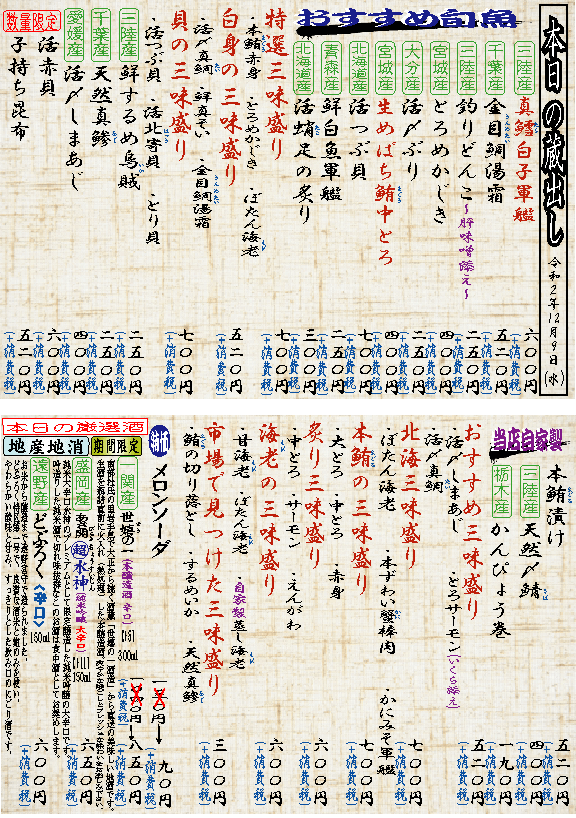 本日の蔵出し
令和2年12月9日(水)
おすすめ旬魚
三陸産 真鱈白子軍艦 六〇〇円(+消費税)
千葉産 金目鯛湯霜 五二〇円(+消費税)
三陸産 釣りどんこ～肝味噌添え～ 二五〇円(+消費税)
宮城産 とろめかじき 四〇〇円(+消費税)
大分産 活〆ぶり 二五〇円(+消費税)
宮城産 生めばち鮪中とろ 四〇〇円(+消費税)
北海道産 活つぶ貝 五二〇円(+消費税)
青森産 鮮白魚軍艦 二五〇円(+消費税)
北海道産 活蛸足の炙り 三〇〇円(+消費税)
特選三味盛り 七〇〇円(+消費税)
・本鮪赤身 ・とろめかじき ・ぼたん海老
白身の三味盛り 五二〇円(+消費税)
・活〆真鯛 ・鮮真ぞい ・金目鯛湯霜
貝の三味盛り 七〇〇円(+消費税)
・活つぶ貝 ・活北寄貝 ・とり貝
三陸産 鮮するめ烏賊 二五〇円(+消費税)
千葉産 天然真鯵 二五〇円(+消費税)
愛媛産 活〆しまあじ 四〇〇円(+消費税)
数量限定
活赤貝 六〇〇円(+消費税)
子持ち昆布 五二〇円(+消費税)
当店自家製
本鮪漬け 五二〇円(+消費税)
三陸産 天然〆鯖 四〇〇円(+消費税)
栃木産 かんぴょう巻 一九〇円(+消費税)
おすすめ三味盛り 五二〇円(+消費税)
・活〆しまあじ ・とろサーモン(いくら添え)
・活〆真鯛
北海三味盛り 七〇〇円(+消費税)
・ぼたん海老 ・本ずわい蟹棒肉 ・かにみそ軍艦
本鮪の三味盛り 七〇〇円(+消費税)
・大とろ ・中とろ ・赤身
炙り三味盛り 六〇〇円(+消費税)
・中とろ ・サーモン ・えんがわ
海老の三味盛り 六〇〇円(+消費税)
・甘海老 ・ぼたん海老 ・自家製蒸し海老
市場で見つけた三味盛り 三〇〇円(+消費税)
・鮪の切り落とし ・するめいか ・天然真鯵
メロンソーダ
九〇円(+消費税)
本日の厳選酒
地産地消
期間限定
一関産 世嬉の一(本醸造酒 辛口) 300ml 八五〇円(+消費税)
盛岡産 あさ開 超水神(純米吟醸 大辛口) 150ml 六五〇円(+消費税)
純米大辛口水神のプレミアムとして限定醸造した純米吟醸の大辛口です。
遠野産 どぶろく〈辛口〉 180ml 六〇〇円(+消費税)